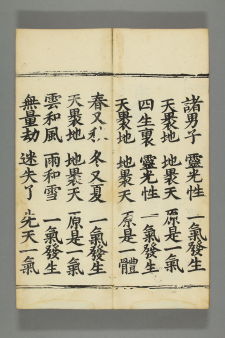 諸男子 靈光性 一氣發生
天褁地 地褁天 原是一氣
四生裏 靈光性 一氣發生
天褁地 地褁天 原是一體
春又秋 冬又夏 一氣發生
天褁地 地褁天 原是一氣
雲和風 雨和雪 一氣發生
無量劫 迷失了 先天一氣